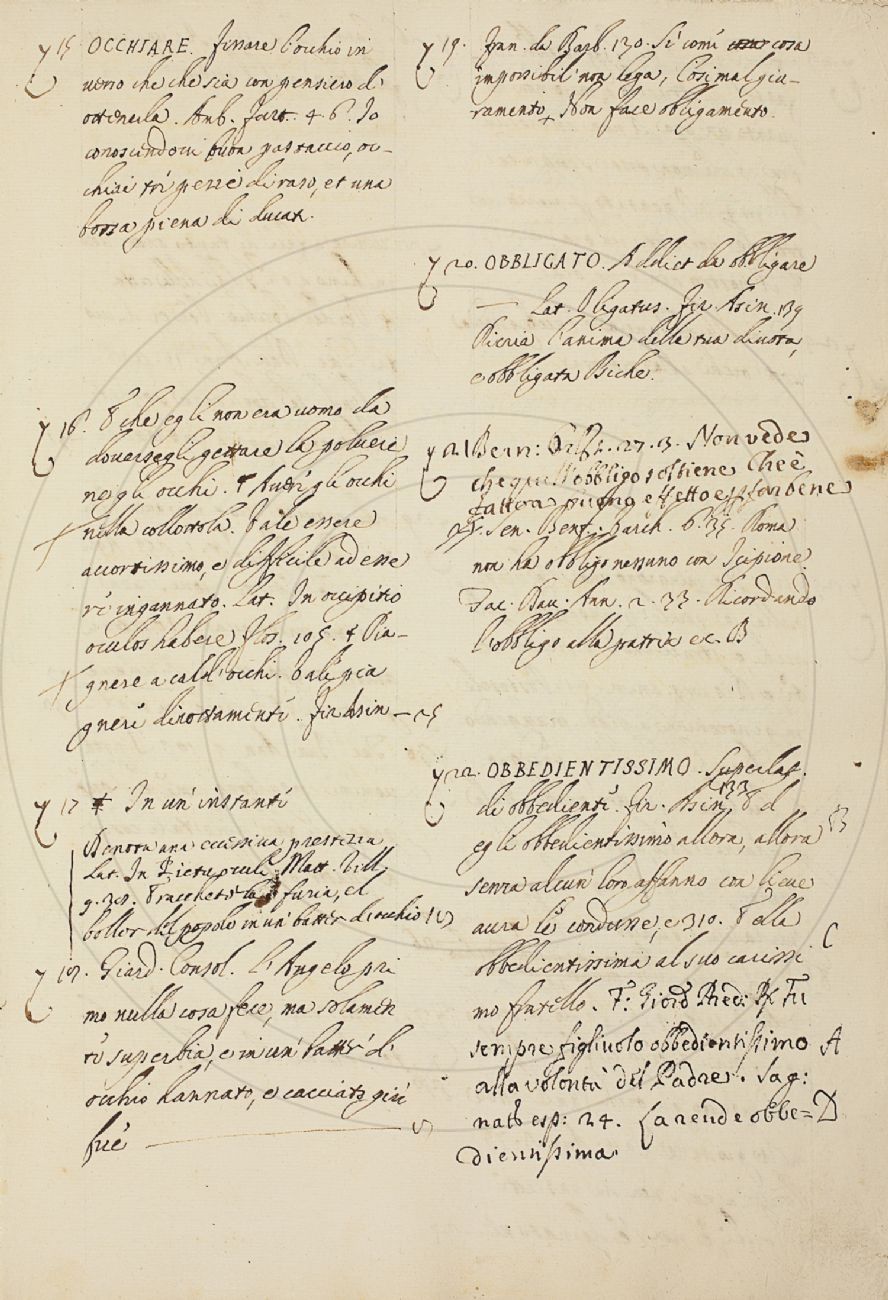 15 OCCHIARE. Fissare l'occhio in
verso che che sia con pensiero di
ottenerla. Amb. Furt. 4. 6. Io
conoscendoci buon pastaccio, oc-
chiai tre pezze di raso, et una
borsa piena di ducati.
16. E che egli non era uomo da
doversegli gettare la polvere
negli occhi. † Aver gli occhi
nella collottola. Vale essere
accortissimo, e difficile ad esse
re ingannato. Lat. In occipitio
oculos habere Flos. 105. † Pia-
gnere a cald' occhi. Vale pia
gnere dirottamente. Fir. Asin — 25
17 † In un' instante
Denota una eccessiva prestezza
Lat. In Ictu oculi. Matt. Vill.
9. 20. furia, el
bollor del popolo in un batter di occhio
18. Giard. Consol. L'Angelo pri
mo nulla cosa fece, ma solamen
te superbia, e in un' batter di
occhio dannato, e cacciato giù
fue
19. Fran. da Barb. 130. Si come cosa
impossibil non lega, Così mal giu-
ramento, Non face obbligamento.
20. OBBLIGATO. Addiet da obbligare
— Lat. Obligatus. Fir. Asin. 139
l'anima della tua divota,
e obbligata Psiche.
21 Bern: Orl. 2. 27. 3. Non vede
che quell' obbligo sostiene Che è
fatto a buono effetto e
Sen. Benf. Varch. 6. 35. Roma
non ha obbligo nessuno con Scipione
Tac. Dav. Ann. 2. 33. Ricordando
l'obbligo alla patria ec. B
22. OBBEDIENTISSIMO. Superlat.
di obbediente. Fir. Asin. 133 Ed
egli obbedientissimo allora, allora B
senza alcun' loro affanno con lieve
aura le condusse, e 310. Ella
obbedientissima al suo carissi C
mo fratello. F: Giord Pred: R. Fu
sempre figliuolo obbedientissimo A
alla volontà del Padre. Sag:
nat. esp: 24. La rende obbe= D
dientissima.